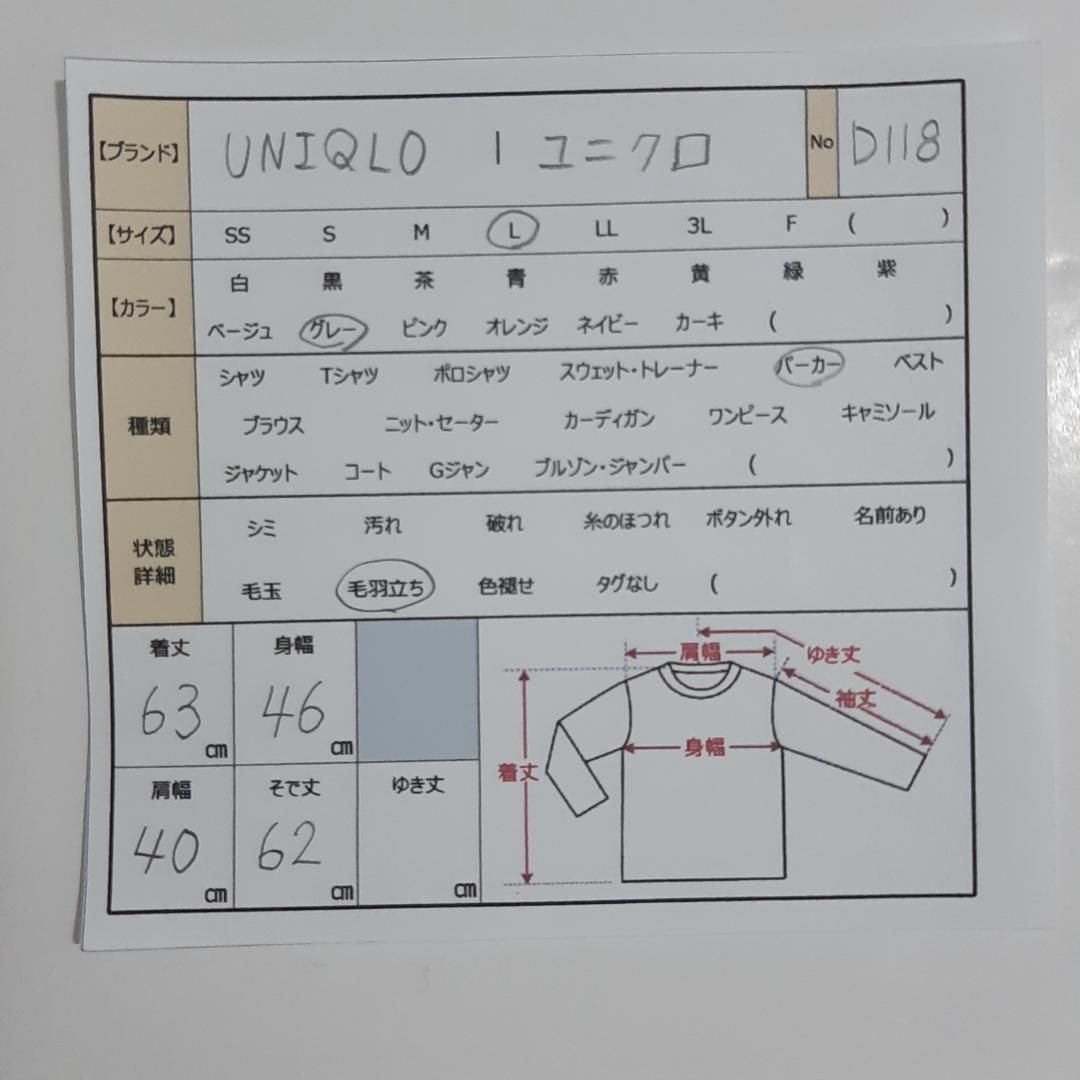 【ブランド】 UNIQLO | ユニクロ No D118
【サイズ】 SS S M L LL 3L F ( )
【カラー】 白 黒 茶 青 赤 黄 緑 紫
ベージュ グレー ピンク オレンジ ネイビー カーキ ( )
種類 シャツ Tシャツ ポロシャツ スウェット・トレーナー パーカー ベスト
ブラウス ニット・セーター カーディガン ワンピース キャミソール
ジャケット コート Gジャン ブルゾン・ジャンパー ( )
状態
詳細
シミ 汚れ 破れ 糸のほつれ ボタン外れ 名前あり
毛玉 毛羽立ち 色褪せ タグなし ( )
着丈 身幅
63 cm 46 cm
肩幅 そで丈 ゆき丈
40 cm 62 cm cm
肩幅 ゆき丈
袖丈
身幅
着丈